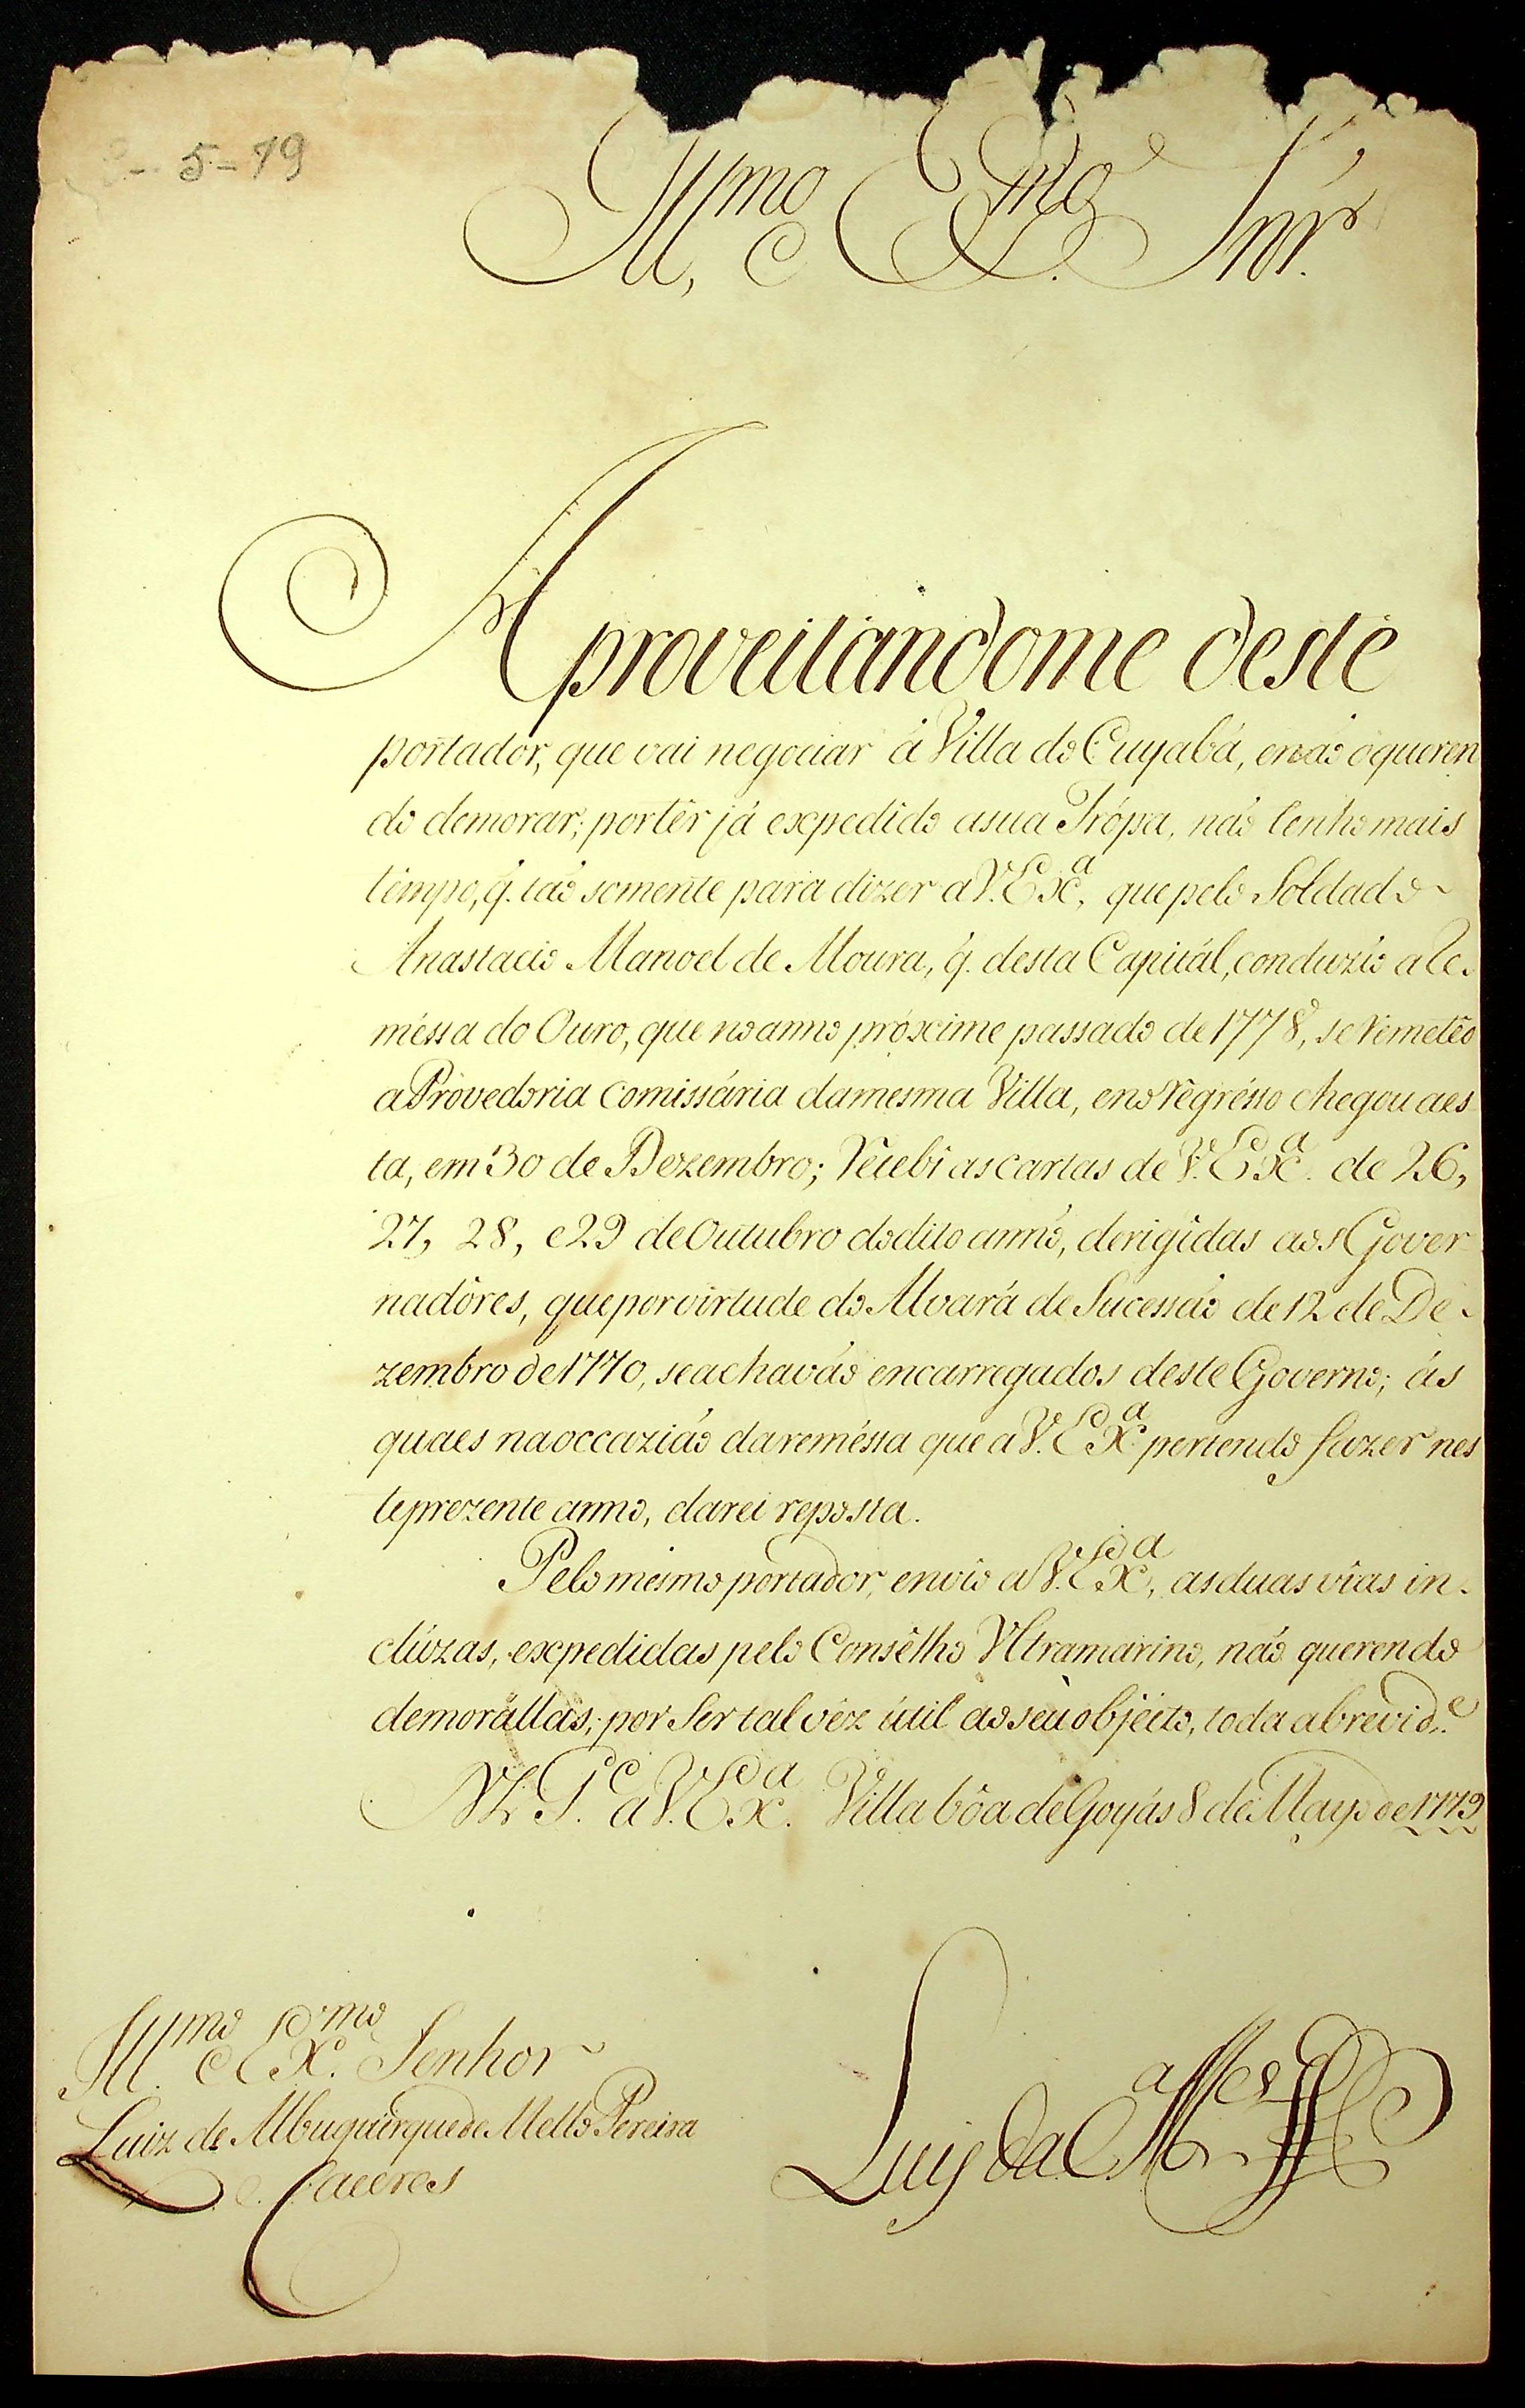 5-79
Ill.mo e Ex.mo Snr.
Aproveitandome deste
portador, que vai negociar á Villa do Cuyabá, enaõ oqueren
do demorar; portêr já expedido asua Trópa, naõ tenho mais
tempo, q̃. taõ somente para dizer a V. Ex.ª, que pelo Soldado
Anastacio Manoel de Moura, q̃. desta Capitál, conduzio aRe-
méssa do Ouro, que noanno próxime passado de 1778, se remetêo
a Provedoria comissária damesma Villa, eno regrésso chegou aes
ta, em 30 de Dezembro; recebi as cartas de V. Ex.ª de 26,
27, 28, e 29 de Outubro dodito anno, derigidas aos Gover
nadôres, que por virtude do Alvará de Sucessaõ de 12 de De-
zembro de 1770, seachavaõ encarregados deste Governo; ás
quaes naoccaziaõ daremêssa que a V. Ex.ª pertendo fazer nes
teprezente anno, darei reposta.
Pelo mesmo portador, envio a V. Ex.ª, as duas vias in-
clúzas, expedidas pelo Consêlho Ultramarino, naõ querendo
demorállas; por ser tal vêz útil ao seu objécto, toda abrevid.e
D.s G.e a V. Ex.ª. Villa bôa de Goyás 8 de Mayo de 1779
Ill.mo e Ex.mo Senhor
Luiz de Albuquerque de Mello Pereira
e Caceres
Luis da